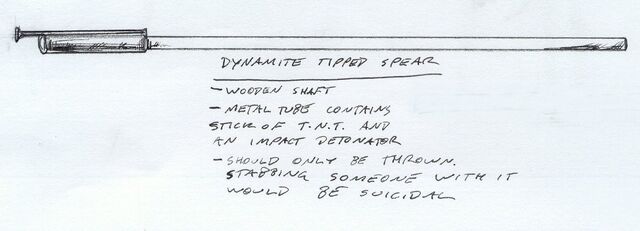 DYNAMITE TIPPED SPEAR
- WOODEN SHAFT
- METAL TUBE CONTAINS
STICK OF T.N.T. AND
AN IMPACT DETONATOR
- SHOULD ONLY BE THROWN.
STABBING SOMEONE WITH IT
WOULD BE SUICIDAL